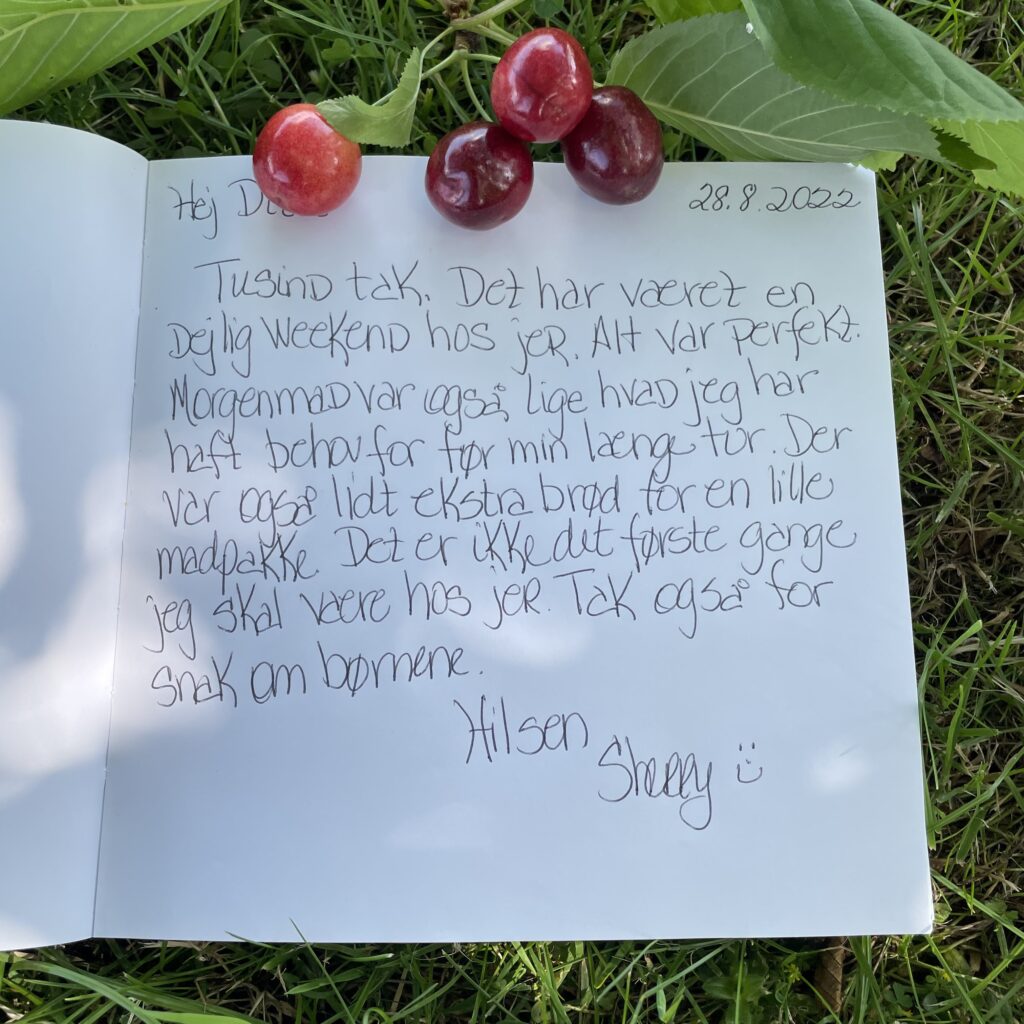 Hej
28.8.2022
Tusind tak. Det har været en
dejlig weekend hos jer. Alt var perfekt.
Morgenmad var også, lige hvad jeg har
haft behov for før min længe tur. Der
var også lidt ekstra brød for en lille
madpakke. Det er ikke det første gange
jeg skal være hos jer. Tak også for
snak om børnene.
Hilsen